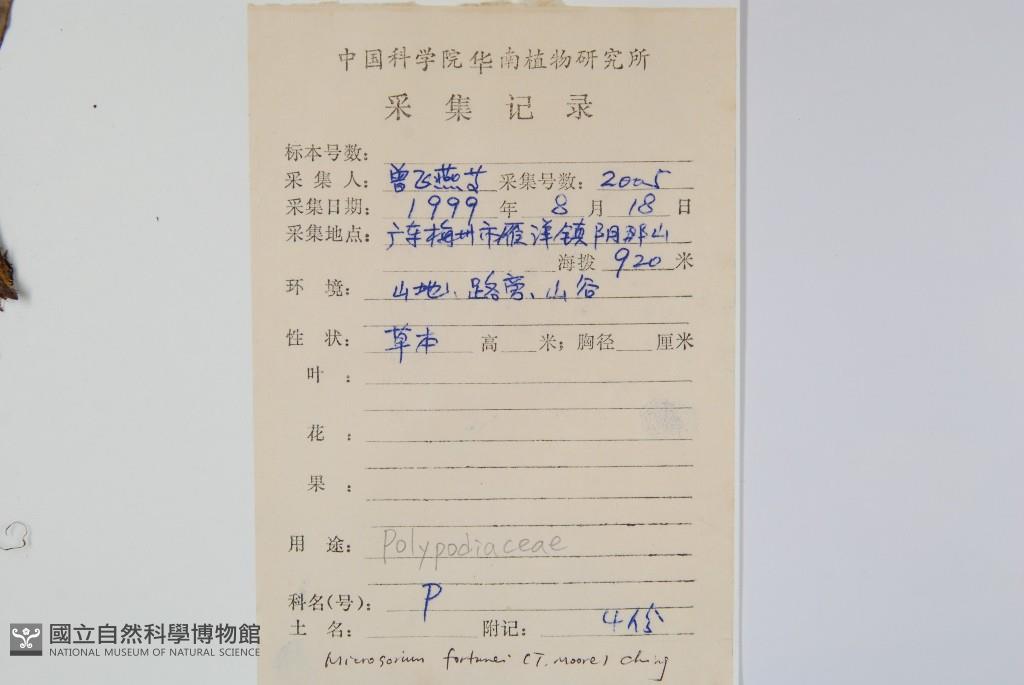 中国科学院华南植物研究所
采集记录
标本号数:
采集人: 曾飞燕等 采集号数: 2005
采集日期: 1999 年 8 月 18 日
采集地点: 广东梅州市雁洋镇阴那山
海拨 920 米
环境: 山地、路旁、山谷
性状: 草本 高 米; 胸径 厘米
叶:
花:
果:
用途: Polypodiaceae
科名(号): P
土名: 附记: 4份
Microsorium fortunei (T. Moore) Ching
國立自然科學博物館
NATIONAL MUSEUM OF NATURAL SCIENCE